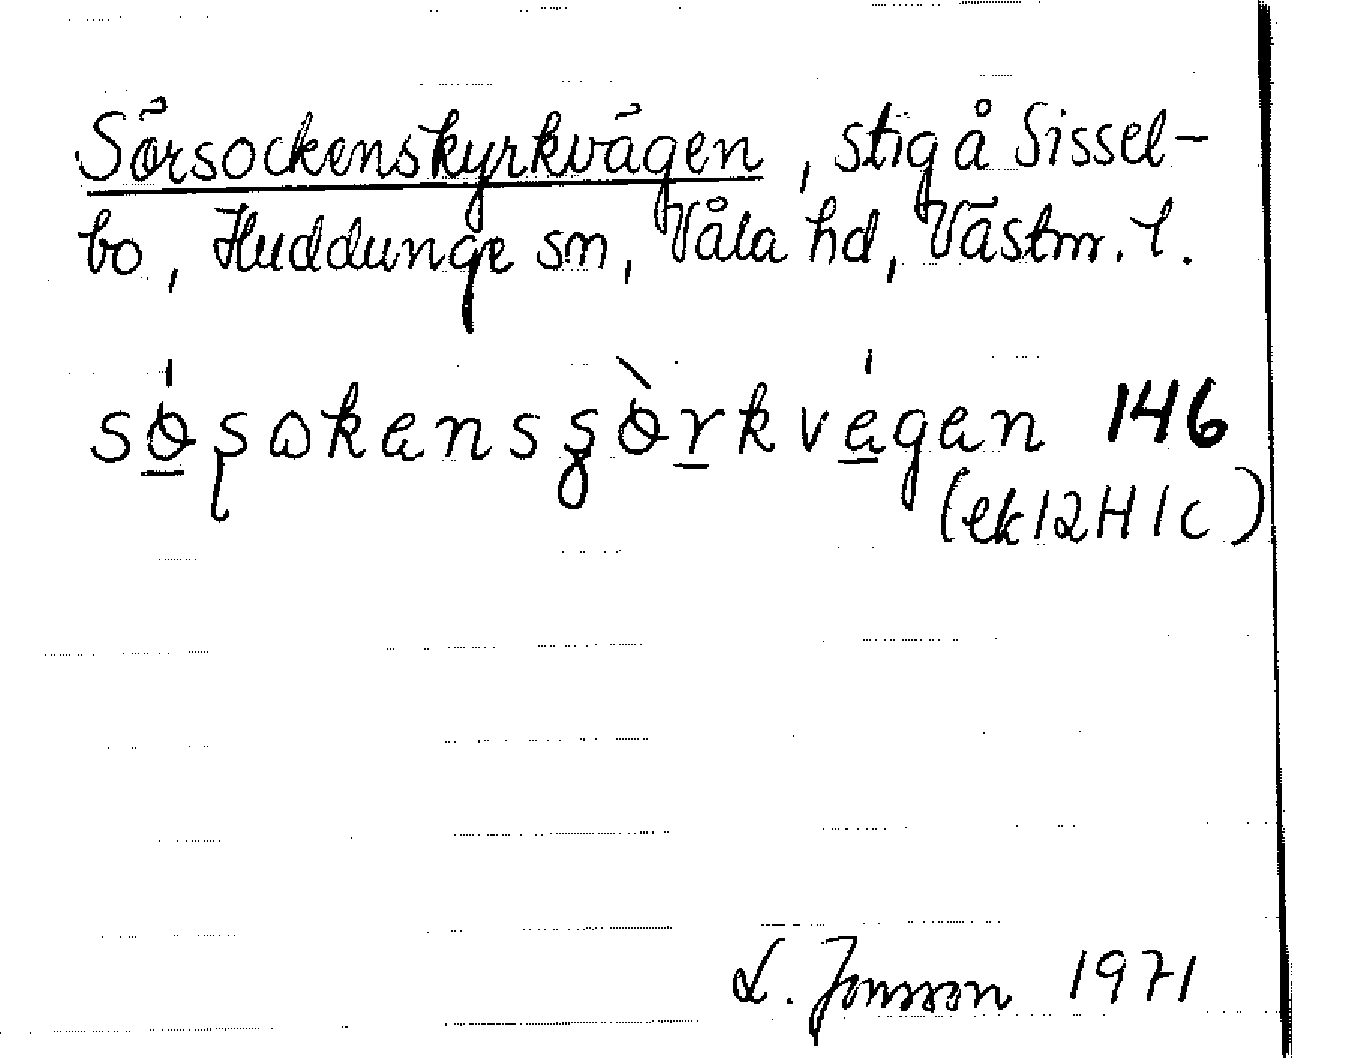 Sörsockenskyrkvägen, stig å Sissel-
bo, Huddunge sn, Våla hd, Västm. l.
146
(ek 12H1c)
L. Jonsson 1971